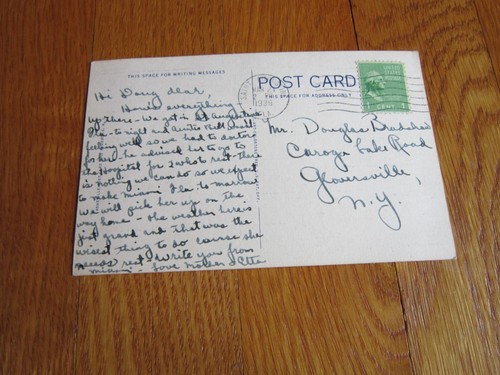 THIS SPACE FOR WRITING MESSAGES
Hi Doug dear,
everything
up there - We got in St Augustine
Fla - to night and Auntie
feeling well so we had to doctor
for her - he advised her to go to
the Hospital for 2 wks to rest there
is nothing we can do so we expect
to make Miami Fla to-morrow
we will pick her up on the
way home - the weather here is
just grand and that was the
wisest thing to do course she
needs rest - write you from
Miami - Love Mother &
POST CARD
THIS SPACE FOR ADDRESS ONLY
1939
FLA
1
CENT
Mr. Douglas Bradshaw
Caroga Lake Road
Gloversville,
N.Y.